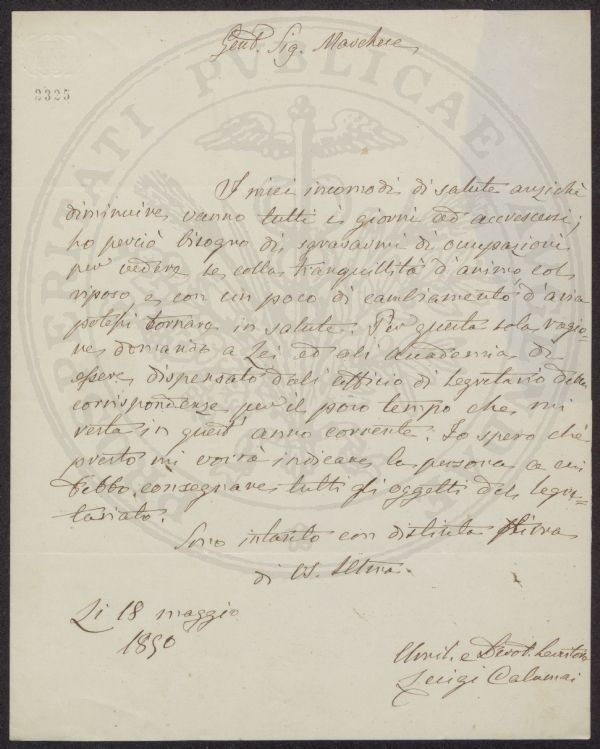 Gent. Sig. Marchese
2325
I miei incomodi di salute anzichè
diminuire vanno tutti i giorni ad accrescersi;
ho perciò bisogno di sgravarmi di occupazioni
per vedere se colla tranquillità d'animo col
riposo e con un poco di cambiamento d'aria
potessi tornare in salute. Per questa sola ragio=
ne domando a Lei ed all' accademia di
essere dispensato dall' officio di Segretario delle
corrispondenze per il poco tempo che mi
resta in quest' anno corrente. Io spero che
presto mi vorrà indicare la persona a cui
debbo consegnare tutti gli oggetti del segre=
tariato.
Sono intanto con distinta stima
di VS. Illma.
Li 18 maggio
1850
Umil. e Devot. Servitore
Luigi Calamai